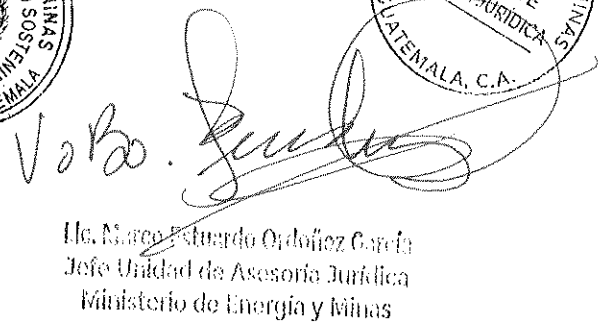 MINAS
SOSTENI
EMALA
JURÍDICA
MINAS
GUATEMALA, C.A.
VoBo.
Lic. Marco Estuardo Ordoñez García
Jefe Unidad de Asesoría Jurídica
Ministerio de Energía y Minas